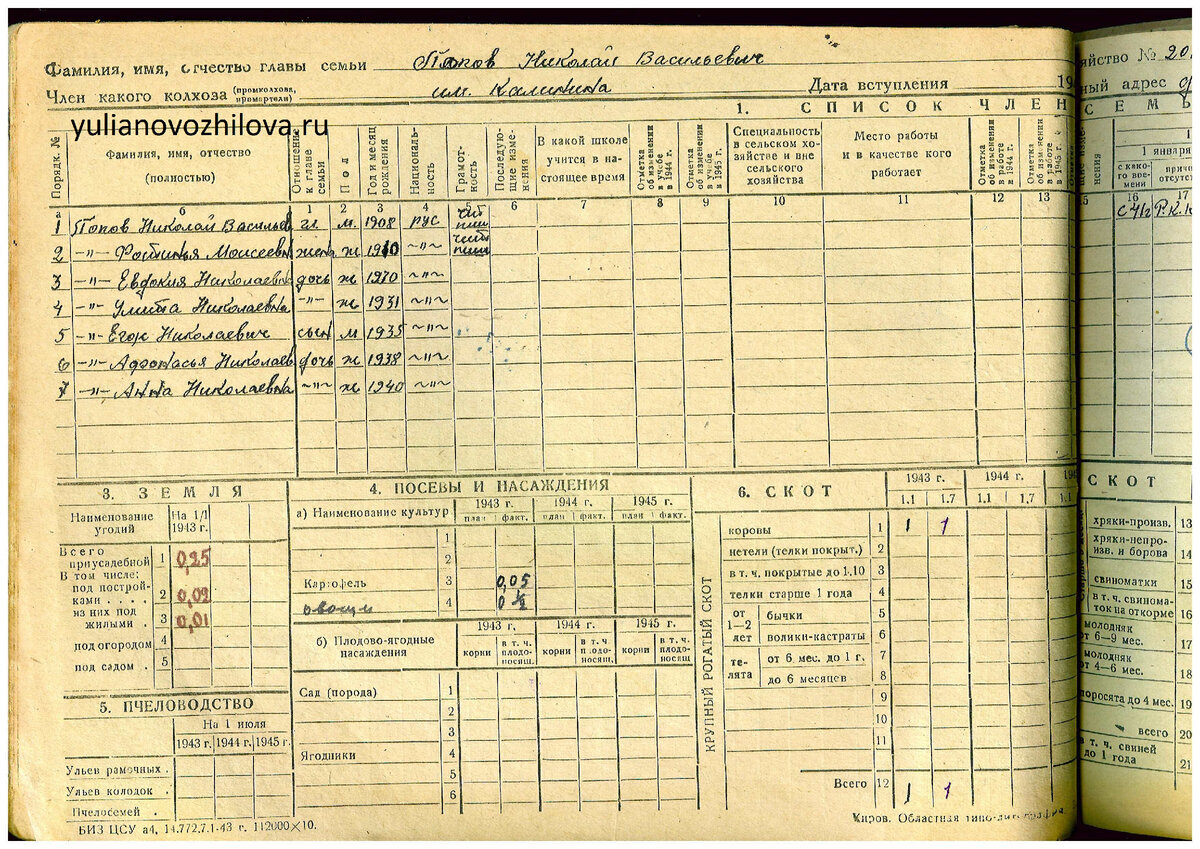 Фамилия, имя, отчество главы семьи Попов Николай Васильевич
Член какого колхоза (промколхоза, промартели) им. Калинина Дата вступления 19
яйство № 20
ный адрес
1. СПИСОК ЧЛЕН
СЕМЬ
yulianovozhilova.ru
Порядк. №
Фамилия, имя, отчество (полностью)
Отношение к главе семьи
Пол
Год и месяц рождения
Националь-ность
Грамот-ность
Последую-щие изме-нения
В какой школе учится в на-стоящее время
Отметка об изменении в учебе в 1944 г.
Отметка об изменении в учебе в 1945 г.
Специальность в сельском хо-зяйстве и вне сельского хозяйства
Место работы и в качестве кого работает
Отметка об изменении в работе в 1944 г.
Отметка об изменении в работе в 1945 г.
нения
1 января
с како-го вре-мени
причи
отсутс
а б 1 2 3 4 5 6 7 8 9 10 11 12 13 15 16 17
1 Попов Николай Васильев гл. м. 1908 рус чит пиш с 41г Р.К.К
2 -"- Фотинья Моисеевн жена ж 1910 -"- чит пиш
3 -"- Евдокия Николаевна дочь ж 1930 -"-
4 -"- Улита Николаевна -"- ж 1931 -"-
5 -"- Егор Николаевич сын м 1935 -"-
6 -"- Афонасья Николаев дочь ж 1938 -"-
7 -"- Анна Николаевна -"- ж 1940 -"-
3. ЗЕМЛЯ
Наименование угодий На 1/I 1943 г.
Всего приусадебной 1 0,25
В том числе:
под построй-ками . . . . 2 0,09
из них под жилыми . 3 0,01
под огородом 4
под садом . 5
5. ПЧЕЛОВОДСТВО
На 1 июля
1943 г. 1944 г. 1945 г.
Ульев рамочных .
Ульев колодок .
Пчелосемей .
БИЗ ЦСУ а4, 14.772.7.1-43 г. 112000×10.
4. ПОСЕВЫ И НАСАЖДЕНИЯ
а) Наименование культур 1943 г. 1944 г. 1945 г.
план факт. план факт. план факт.
1
2
Картофель 3 0,05
овощи 4 0 ½
б) Плодово-ягодные насаждения 1943 г. 1944 г. 1945 г.
корни в т. ч. плодо-носящ. корни в т. ч. плодо-носящ. корни в т. ч. плодо-носящ
Сад (порода) 1
2
3
Ягодники 4
5
6
6. СКОТ
1943 г. 1944 г. 194
1.1 1.7 1.1 1.7 1.1
КРУПНЫЙ РОГАТЫЙ СКОТ
коровы 1 1 1
нетели (телки покрыт.) 2
в т. ч. покрытые до 1.10 3
телки старше 1 года 4
от 1—2 лет бычки 5
волики-кастраты 6
те-лята от 6 мес. до 1 г. 7
до 6 месяцев 8
9
10
11
Всего 12 1 1
Киров. Областная типо-литография
СКОТ
хряки-произв. 13
хряки-непро-изв. и борова 14
свиноматки 15
в т. ч. свинома-ток на откорме 16
молодняк от 6—9 мес. 17
молодняк от 4—6 мес. 18
поросята до 4 мес. 19
всего 20
в т. ч. свиней до 1 года 21